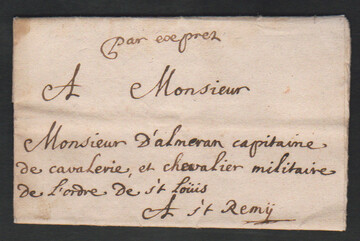 par exprez
A Monsieur
Monsieur D'almeran capitaine
de cavalerie, et chevalier militaire
de L'ordre de s't Loüis
A s't Remÿ